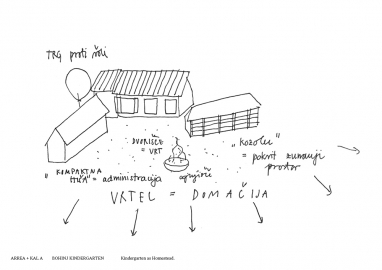 TRG proti šoli
DVORIŠČE
= VRT
"KOZOLEC"
= pokrit zunanji
prostor
ognjišče
"KOMPAKTNA
HIŠA" = administracija
VRTEC = DOMAČIJA
ARREA + KAL A BOHINJ KINDERGARTEN Kindergarten as Homestead.